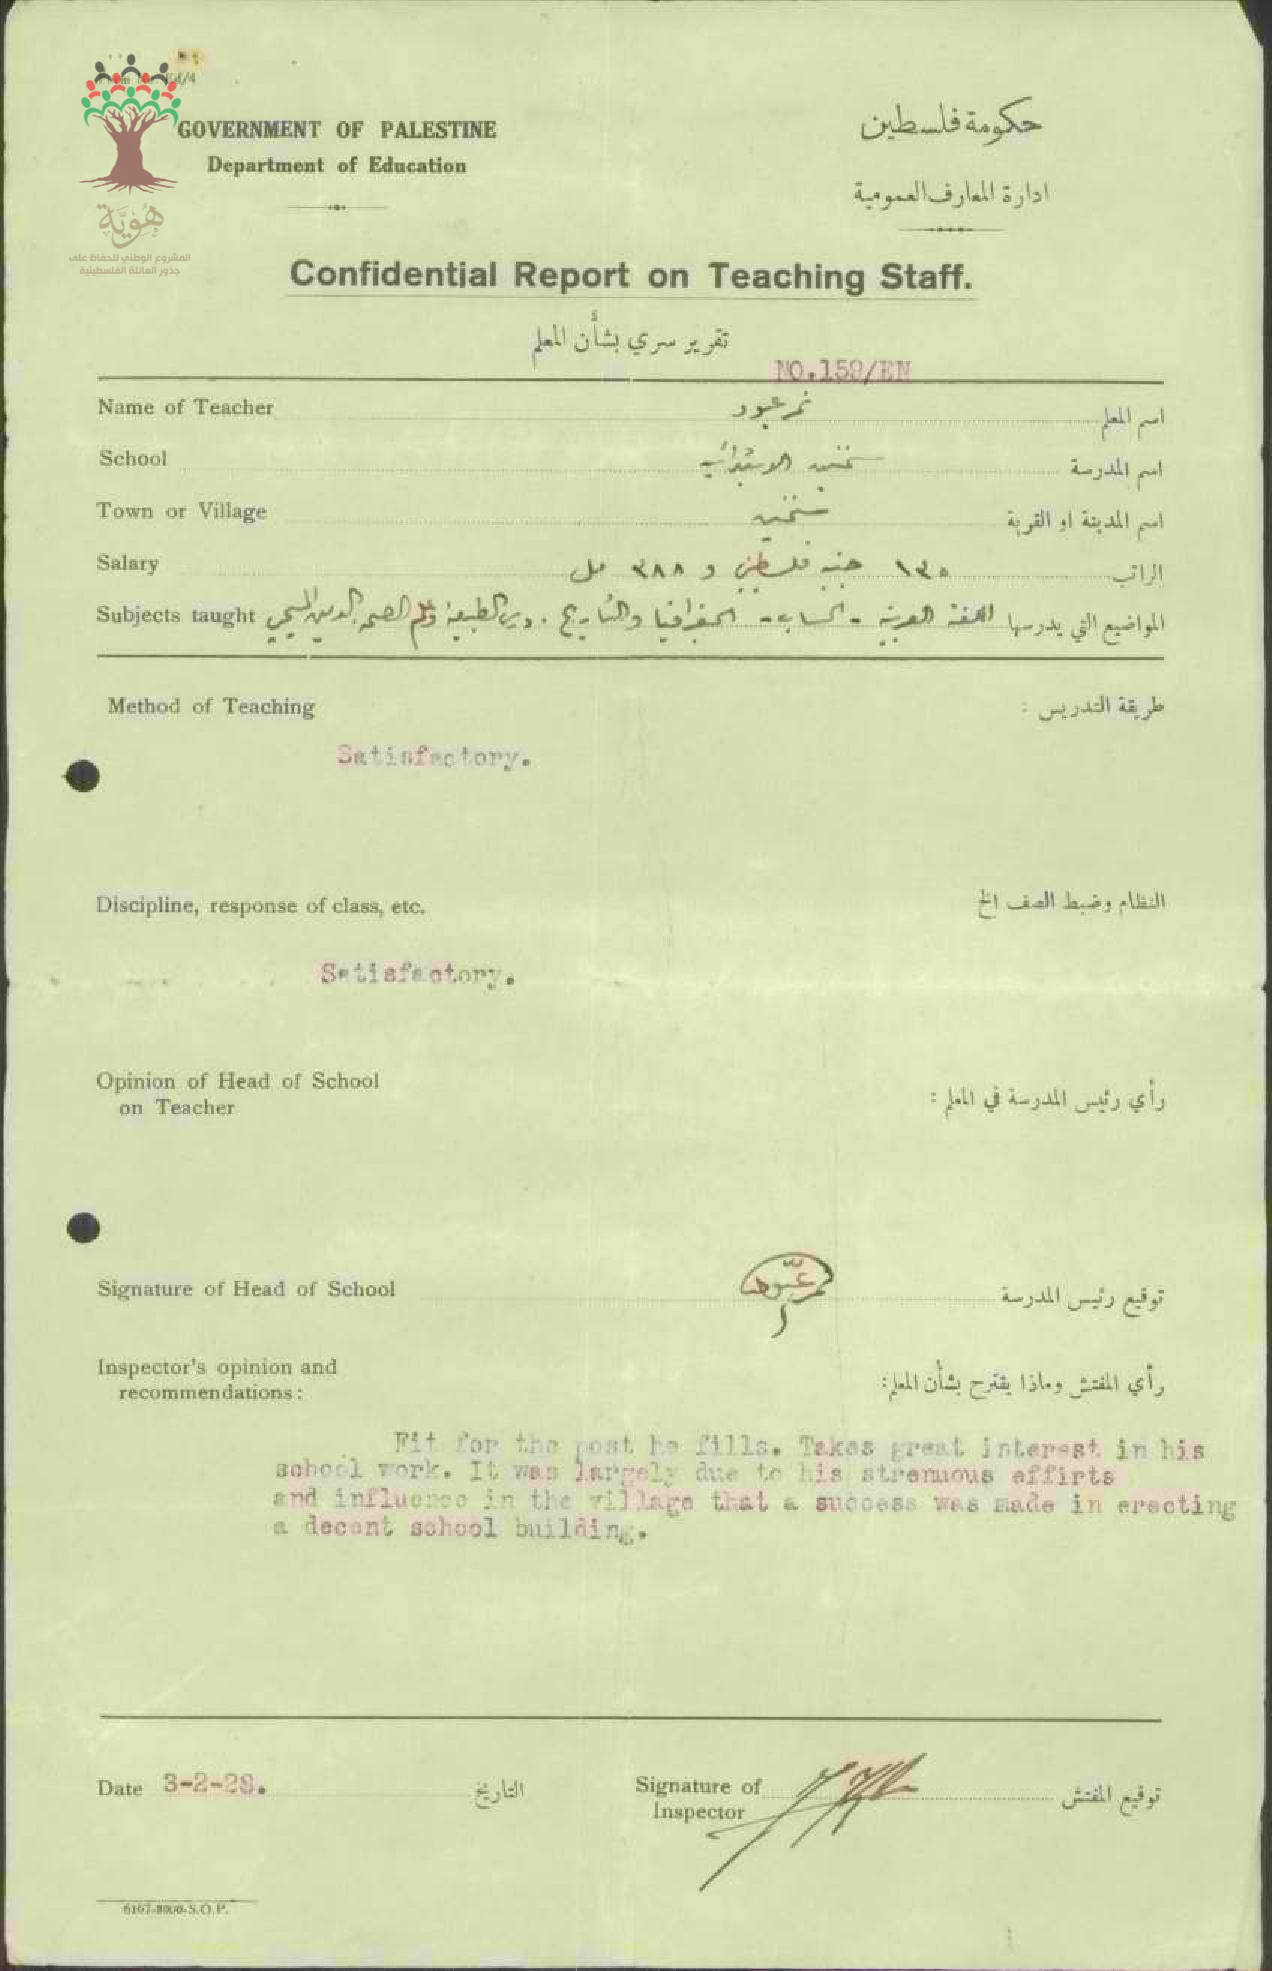 GOVERNMENT OF PALESTINE
Department of Education
حكومة فلسطين
ادارة المعارف العمومية
هُويَّة
المشروع الوطني للحفاظ على
جذور العائلة الفلسطينية
Confidential Report on Teaching Staff.
تقرير سري بشأن المعلم
NO.159/EN
Name of Teacher نمر عبود اسم المعلم
School سخنين الابتدائية اسم المدرسة
Town or Village سخنين اسم المدينة او القرية
Salary ١٣٥ جنيه فلسطيني و ٣٨٨ مل الراتب
Subjects taught المواضيع التي يدرسها اللغة العربية - الحساب - الجغرافيا والتاريخ . دروس الطبيعة وعلم الصحة الدين المسيحي
Method of Teaching طريقة التدريس :
Satisfactory.
Discipline, response of class, etc. النظام وضبط الصف الخ
Satisfactory.
Opinion of Head of School
on Teacher
رأي رئيس المدرسة في المعلم :
Signature of Head of School نمر عبّود توقيع رئيس المدرسة
Inspector's opinion and
recommendations:
رأي المفتش وماذا يقترح بشأن المعلم:
Fit for the post he fills. Takes great interest in his
school work. It was largely due to his strenuous effirts
and influence in the village that a success was made in erecting
a decent school building.
Date 3-2-28. التاريخ
Signature of
Inspector
توقيع المفتش
6167-8000-S.O.P.